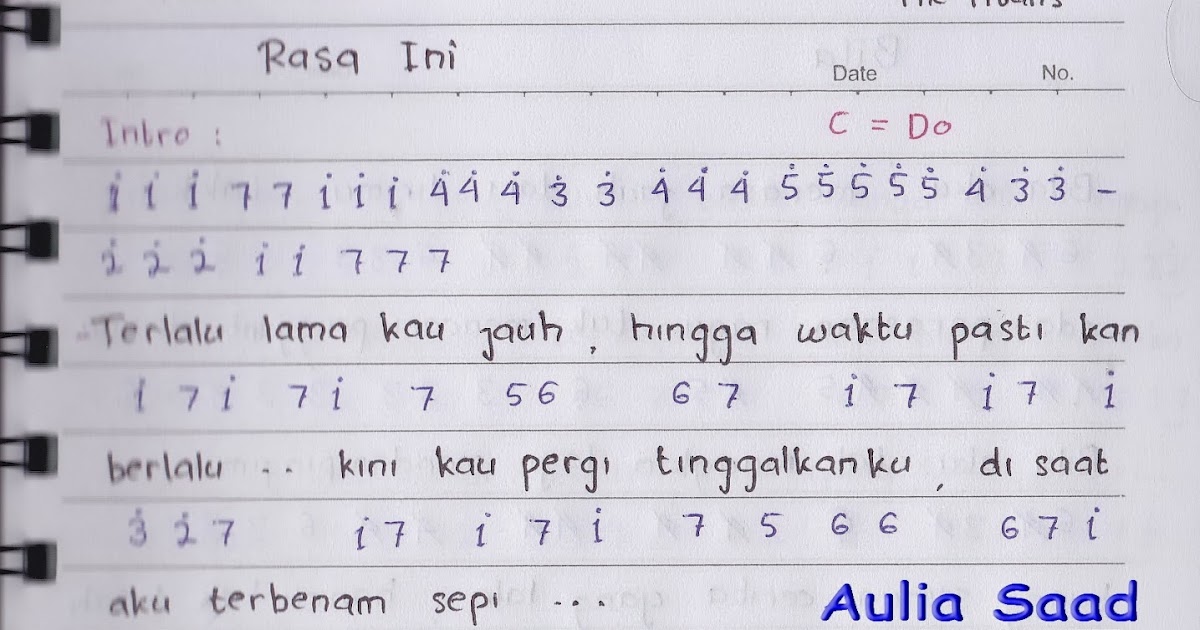 Rasa Ini
Date No.
Intro : C = Do
i i i 7 7 i i i 4̇ 4̇ 4̇ 3̇ 3̇ 4̇ 4̇ 4̇ 5̇ 5̇ 5̇ 5̇ 5̇ 4̇ 3̇ 3̇ -
2̇ 2̇ 2̇ i i 7 7 7
Terlalu lama kau jauh, hingga waktu pasti kan
i 7 i 7 i 7 5 6 6 7 i 7 i 7 i
berlalu ... kini kau pergi tinggalkanku, di saat
3̇ 2̇ 7 i 7 i 7 i 7 5 6 6 6 7 i
aku terbenam sepi ...
Aulia Saad